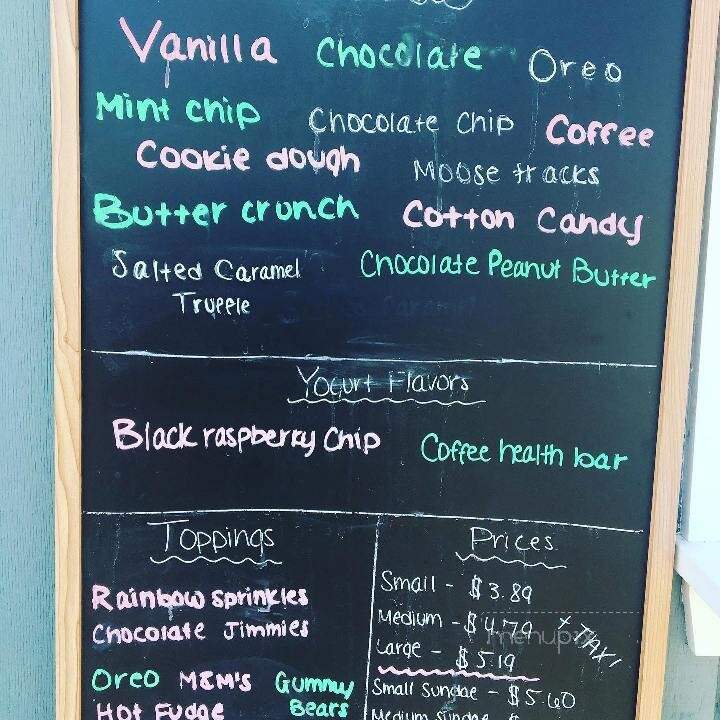 Vanilla Chocolate Oreo
Mint chip Chocolate Chip Coffee
Cookie dough Moose tracks
Butter crunch Cotton Candy
Salted Caramel Truffle Chocolate Peanut Butter
Yogurt Flavors
Black raspberry Chip Coffee health bar
Toppings
Rainbow sprinkles
Chocolate Jimmies
Oreo M&M's Gummy Bears
Hot Fudge
Prices
Small - $3.89
Medium - $4.79
Large - $5.19
+ TAX!
Small Sundae - $5.60
Medium Sundae - $
menupix